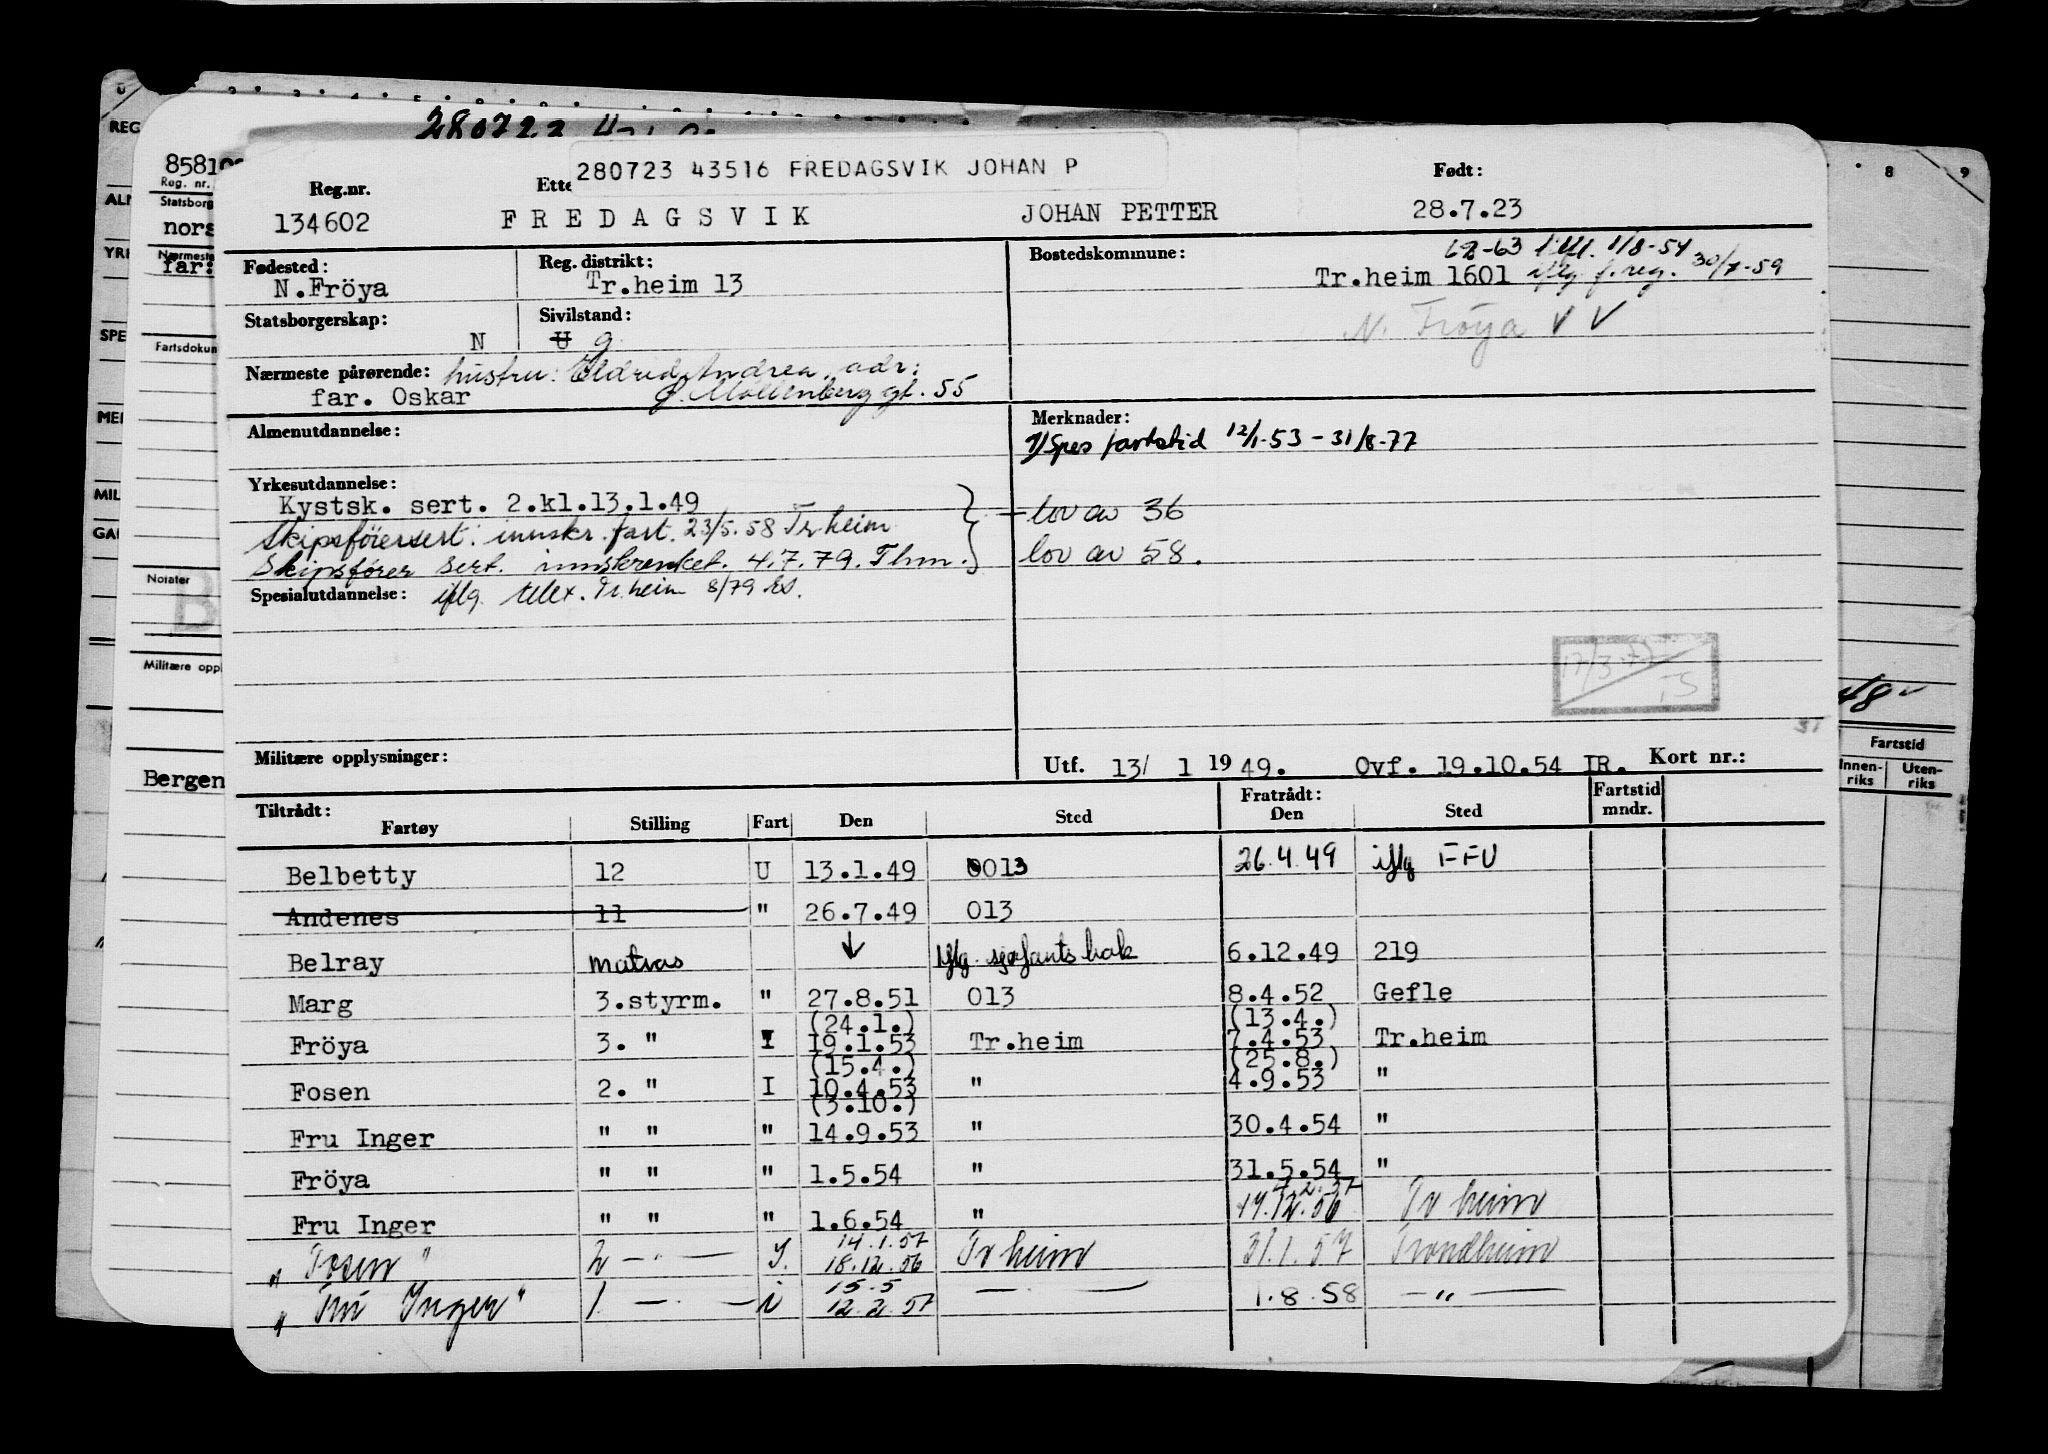 280723
858109
280723 43516 FREDAGSVIK JOHAN P
Reg.nr. Født:
134602 FREDAGSVIK JOHAN PETTER 28.7.23
Fødested: Reg. distrikt: Bostedskommune: 62-63 1/8-54
N.Fröya Tr.heim 13 Tr.heim 1601 iflg. f. reg. 30/7-59
Statsborgerskap: Sivilstand: N. Fröya V V
N U g
Nærmeste pårørende: hustru: Eldrid Andrea, adr:
far. Oskar Ø. Møllenberg gt. 55
Almenutdannelse: Merknader:
1/ Spes fartstid 12/1-53 - 31/8-77
Yrkesutdannelse:
Kystsk. sert. 2.kl.13.1.49 lov av 36
Skipsførersert: innskr. fart. 23/5.58 Tr heim
Skipsfører sert. innskrenket. 4.7.79. Thm. lov av 58.
Spesialutdannelse: iflg. telex. Tr.heim 8/79
17/3
Militære opplysninger: Utf. 13/ 1 19 49. Ovf. 19.10.54 IR. Kort nr.:
Tiltrådt: Fratrådt: Fartstid
Fartøy Stilling Fart Den Sted Den Sted mndr.
Belbetty 12 U 13.1.49 0013 26.4.49 iflg FFU
Andenes 11 " 26.7.49 013
Belray matros ↓ iflg. sjøfartsbok 6.12.49 219
Marg 3.styrm. " 27.8.51 013 8.4.52 Gefle
(24.1.) (13.4.)
Fröya 3. " I 19.1.53 Tr.heim 7.4.53 Tr.heim
(15.4.) (25.8.)
Fosen 2. " I 10.4.53 " 4.9.53 "
(3.10.)
Fru Inger " " " 14.9.53 " 30.4.54 "
Fröya " " " 1.5.54 " 31.5.54 "
Fru Inger " " " 1.6.54 " 14.12.56 Tr heim
14.1.57
„ Fosen " 2 - " - I. 18.12.56 Tr heim 31.1.57 Trondheim
15.5
„ Fru Inger " 1. - " - i 12.2.57 - " - 1.8.58 - " -
REG
Reg. nr.
Statsborg
nors
Nærmeste
far:
Fartsdokun
Notater
B
Militære oppl
Bergen
Fartstid
Innen-riks Uten-riks
48
8 9